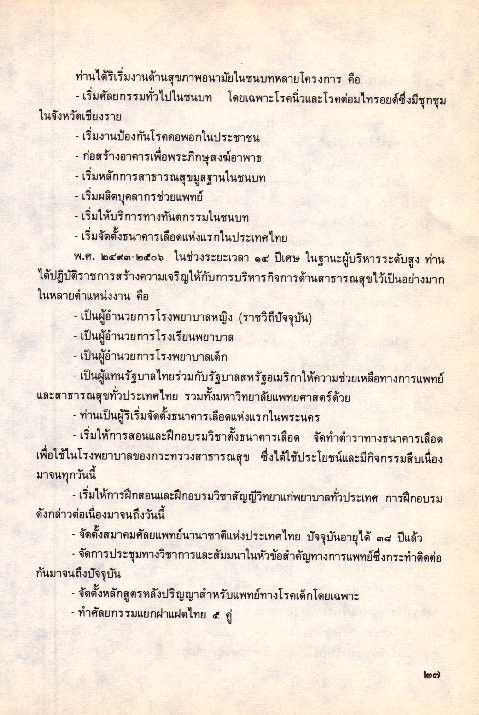 ท่านได้ริเริ่มงานด้านสุขภาพอนามัยในชนบทหลายโครงการ คือ
- เริ่มศัลยกรรมทั่วไปในชนบท โดยเฉพาะโรคนิ่วและโรคต่อมไทรอยด์ซึ่งมีชุกชุม
ในจังหวัดเชียงราย
- เริ่มงานป้องกันโรคคอพอกในประชาชน
- ก่อสร้างอาคารเพื่อพระภิกษุสงฆ์อาพาธ
- เริ่มหลักการสาธารณสุขมูลฐานในชนบท
- เริ่มผลิตบุคลากรช่วยแพทย์
- เริ่มให้บริการทางทันตกรรมในชนบท
- เริ่มจัดตั้งธนาคารเลือดแห่งแรกในประเทศไทย
พ.ศ. ๒๔๙๓-๒๕๐๖ ในช่วงระยะเวลา ๑๔ ปีเศษ ในฐานะผู้บริหารระดับสูง ท่าน
ได้ปฏิบัติราชการสร้างความเจริญให้กับการบริหารกิจการด้านสาธารณสุขไว้เป็นอย่างมาก
ในหลายตำแหน่งงาน คือ
- เป็นผู้อำนวยการโรงพยาบาลหญิง (ราชวิถีปัจจุบัน)
- เป็นผู้อำนวยการโรงเรียนพยาบาล
- เป็นผู้อำนวยการโรงพยาบาลเด็ก
- เป็นผู้แทนรัฐบาลไทยร่วมกับรัฐบาลสหรัฐอเมริกาให้ความช่วยเหลือทางการแพทย์
และสาธารณสุขทั่วประเทศไทย รวมทั้งมหาวิทยาลัยแพทยศาสตร์ด้วย
- ท่านเป็นผู้ริเริ่มจัดตั้งธนาคารเลือดแห่งแรกในพระนคร
- เริ่มให้การสอนและฝึกอบรมวิชาตั้งธนาคารเลือด จัดทำตำราทางธนาคารเลือด
เพื่อใช้ในโรงพยาบาลของกระทรวงสาธารณสุข ซึ่งได้ใช้ประโยชน์และมีกิจกรรมสืบเนื่อง
มาจนทุกวันนี้
- เริ่มให้การฝึกสอนและฝึกอบรมวิชาสัญญีวิทยาแก่พยาบาลทั่วประเทศ การฝึกอบรม
ดังกล่าวต่อเนื่องมาจนถึงวันนี้
- จัดตั้งสมาคมศัลยแพทย์นานาชาติแห่งประเทศไทย ปัจจุบันอายุได้ ๓๘ ปีแล้ว
- จัดการประชุมทางวิชาการและสัมมนาในหัวข้อสำคัญทางการแพทย์ซึ่งกระทำติดต่อ
กันมาจนถึงปัจจุบัน
- จัดตั้งหลักสูตรหลังปริญญาสำหรับแพทย์ทางโรคเด็กโดยเฉพาะ
- ทำศัลยกรรมแยกฝาแฝดไทย ๕ คู่
๒๗